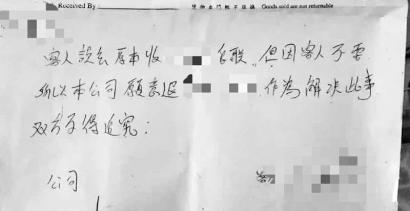 Received By
貨物出門概不退換 Goods sold are not returnable
客人說公 原本收 名聯,但因客人不要
所以本公司願意退 作為解決此事
双方不得追究:
公司